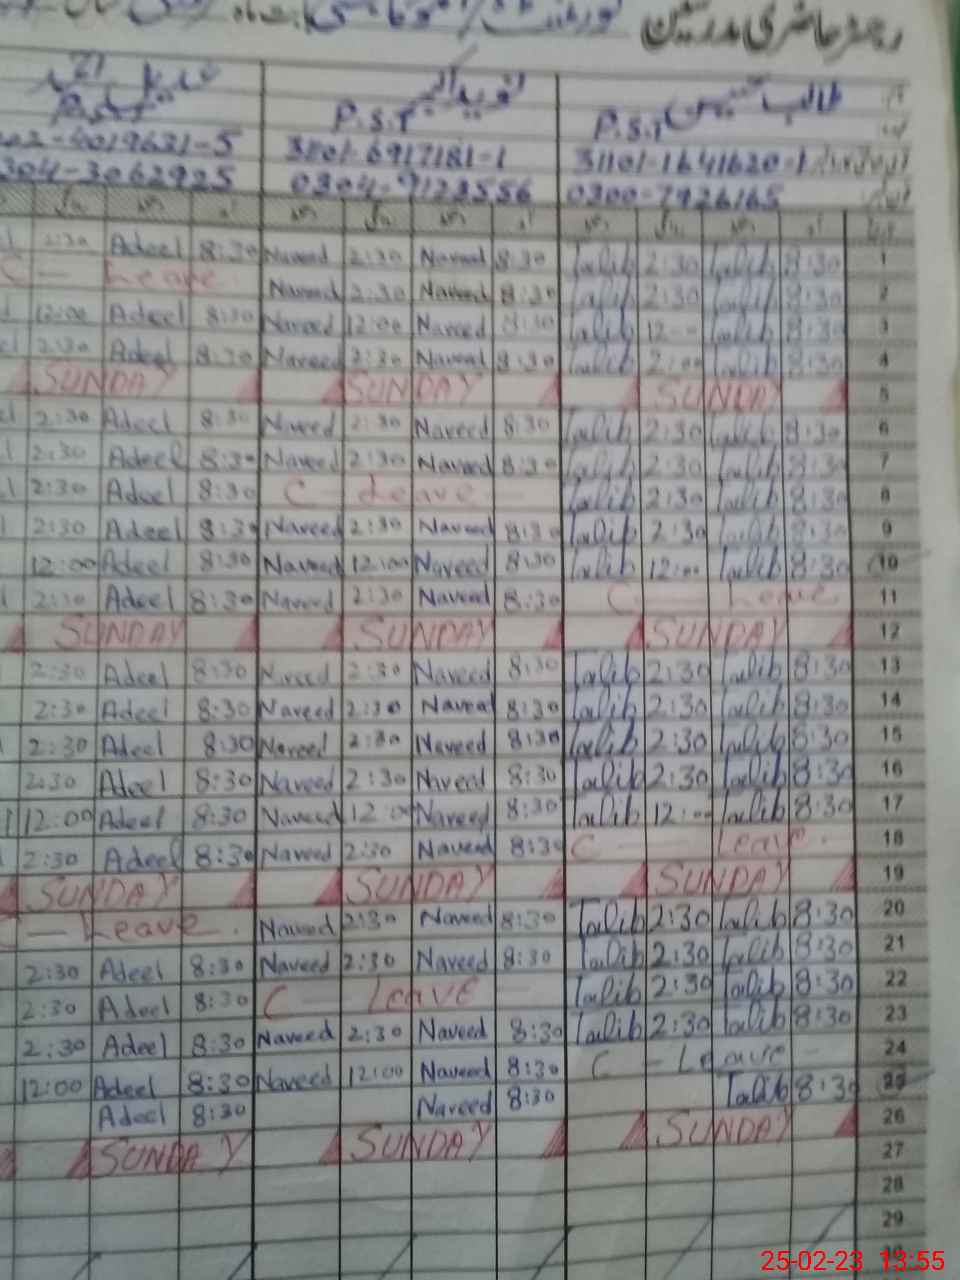 رجسٹر حاضری مدرسین
P.S.T P.S.T
4019631-5 31101-6917181-1 31101-1641620-1
0304-3062925 0304-9123556 0300-7926165
2:30 Adeel 8:30 Naveed 2:30 Naveed 8:30 Talib 2:30 Talib 8:30 1
C — Leave Naveed 2:30 Naveed 8:30 Talib 2:30 Talib 8:30 2
12:00 Adeel 8:30 Naveed 12:00 Naveed 8:30 Talib 12:00 Talib 8:30 3
2:30 Adeel 8:30 Naveed 2:30 Naveed 8:30 Talib 2:00 Talib 8:30 4
SUNDAY SUNDAY SUNDAY 5
2:30 Adeel 8:30 Naveed 2:30 Naveed 8:30 Talib 2:30 Talib 8:30 6
2:30 Adeel 8:30 Naveed 2:30 Naveed 8:30 Talib 2:30 Talib 8:30 7
2:30 Adeel 8:30 C — Leave — Talib 2:30 Talib 8:30 8
2:30 Adeel 8:30 Naveed 2:30 Naveed 8:30 Talib 2:30 Talib 8:30 9
12:00 Adeel 8:30 Naveed 12:00 Naveed 8:30 Talib 12:00 Talib 8:30 10
2:30 Adeel 8:30 Naveed 2:30 Naveed 8:30 C — Leave 11
SUNDAY SUNDAY SUNDAY 12
2:30 Adeel 8:30 Naveed 2:30 Naveed 8:30 Talib 2:30 Talib 8:30 13
2:30 Adeel 8:30 Naveed 2:30 Naveed 8:30 Talib 2:30 Talib 8:30 14
2:30 Adeel 8:30 Naveed 2:30 Naveed 8:30 Talib 2:30 Talib 8:30 15
2:30 Adeel 8:30 Naveed 2:30 Naveed 8:30 Talib 2:30 Talib 8:30 16
12:00 Adeel 8:30 Naveed 12:00 Naveed 8:30 Talib 12:00 Talib 8:30 17
2:30 Adeel 8:30 Naveed 2:30 Naveed 8:30 C — Leave 18
SUNDAY SUNDAY SUNDAY 19
C — Leave Naveed 2:30 Naveed 8:30 Talib 2:30 Talib 8:30 20
2:30 Adeel 8:30 Naveed 2:30 Naveed 8:30 Talib 2:30 Talib 8:30 21
2:30 Adeel 8:30 C — Leave — Talib 2:30 Talib 8:30 22
2:30 Adeel 8:30 Naveed 2:30 Naveed 8:30 Talib 2:30 Talib 8:30 23
12:00 Adeel 8:30 Naveed 12:00 Naveed 8:30 C — Leave — 24
Adeel 8:30 Naveed 8:30 Talib 8:30 25
SUNDAY SUNDAY SUNDAY 26
27
28
29
25-02-23 13:55